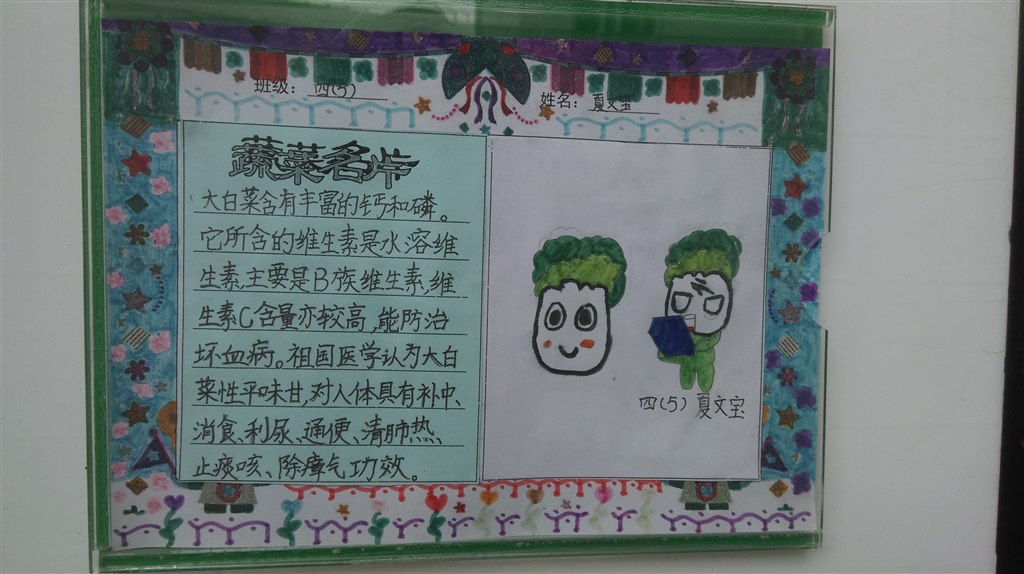 班级：四(5)
姓名：夏文宝
蔬菜名片
大白菜含有丰富的钙和磷。
它所含的维生素是水溶维
生素,主要是B族维生素,维
生素C含量亦较高,能防治
坏血病。祖国医学认为大白
菜性平味甘,对人体具有补中、
消食、利尿、通便、清肺热、
止痰咳、除瘴气功效。
四(5) 夏文宝